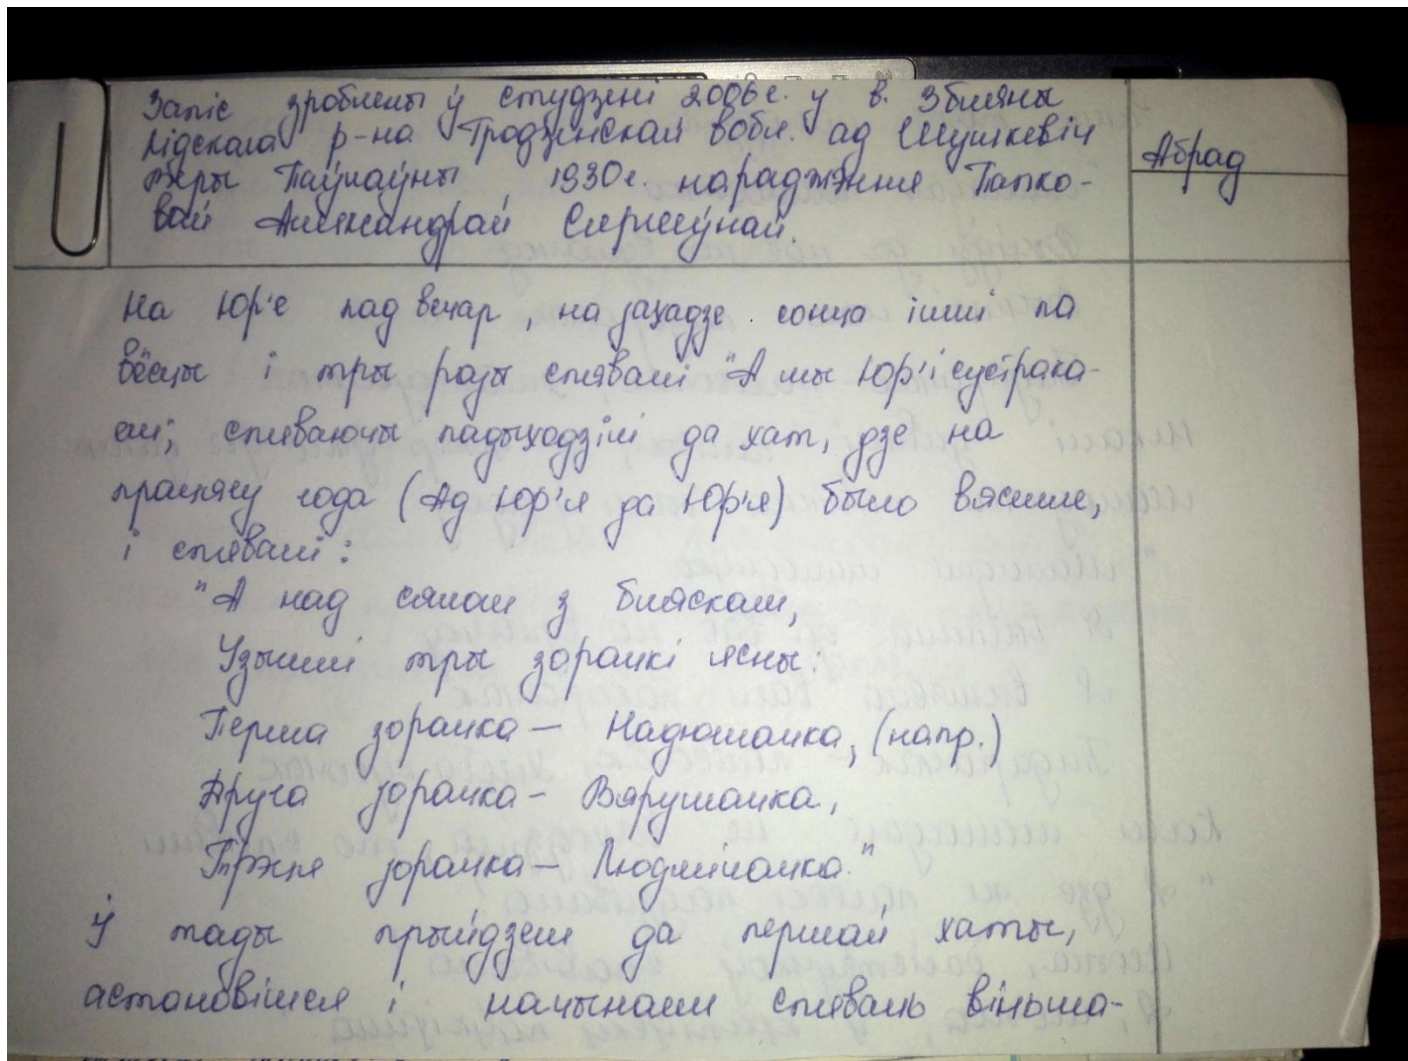 Запіс зроблены ў студзені 2006г. у в. Збляны
Лідскага р-на Гродзенскай вобл. ад Шушкевіч
Веры Паўлаўны, 1930г. нараджэння Папко-
вай Аляксандрай Сяргеўнай.
Абрад
На Юр'е пад вечар, на захадзе сонца ішлі па
вёсцы і тры разы спявалі "А мы Юр'і сустрака-
ем; спяваючы падыходзілі да хат, дзе на
працягу года (Ад Юр'я да Юр'я) было вяселле,
і спявалі:
"А над сялом з бляскам,
Узышлі тры зоранкі ясны:
Перша зоранка – Надюшанка, (напр.)
Друга зоранка – Вярушанка,
Трэця зоранка – Людмілачка."
І тады прыйдзем да першай хаты,
астановімся і начынаем спяваць віньша-